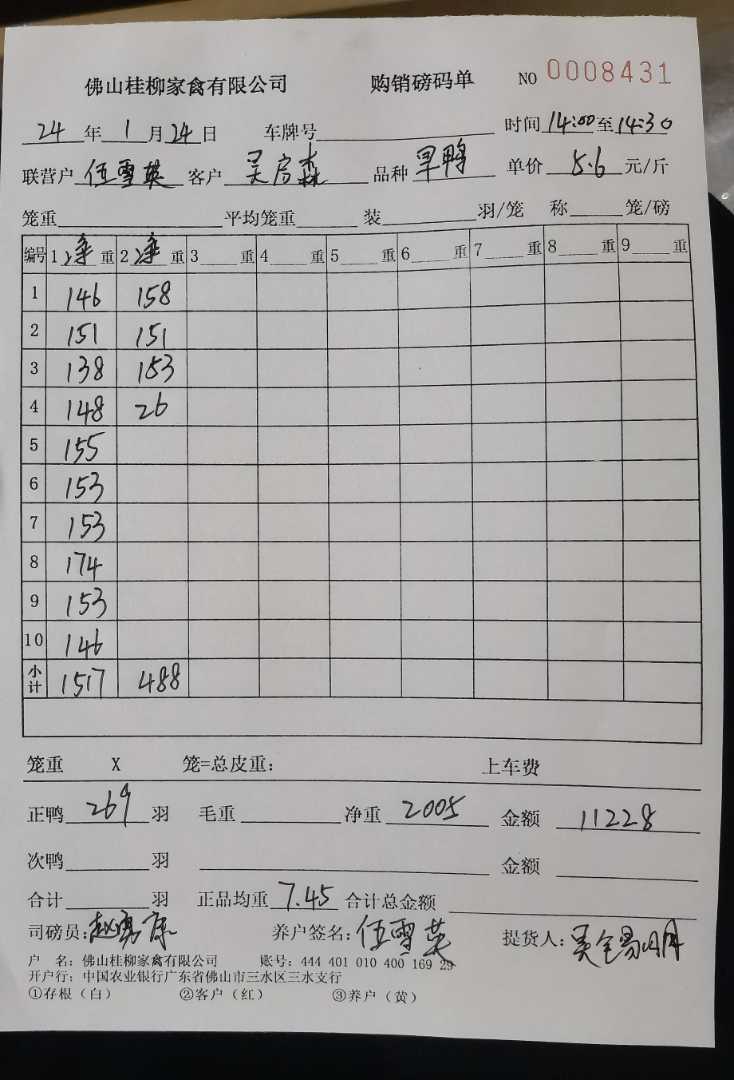 佛山桂柳家禽有限公司 购销磅码单 NO 0008431
24 年 1 月 24 日 车牌号 时间 14:00 至 14:30
联营户 伍雪英 客户 吴启森 品种 旱鸭 单价 5.6 元/斤
笼重 平均笼重 装 羽/笼 称 笼/磅
编号 1 净 重 2 净 重 3 重 4 重 5 重 6 重 7 重 8 重 9 重
1 146 158
2 151 151
3 138 153
4 148 26
5 155
6 153
7 153
8 174
9 153
10 146
小计 1517 488
笼重 X 笼=总皮重: 上车费
正鸭 269 羽 毛重 净重 2005 金额 11228
次鸭 羽 金额
合计 羽 正品均重 7.45 合计总金额
司磅员: 养户签名: 伍雪英 提货人:
户 名: 佛山桂柳家禽有限公司 账号: 444 401 010 400 169 29
开户行: 中国农业银行广东省佛山市三水区三水支行
①存根(白) ②客户(红) ③养户(黄)